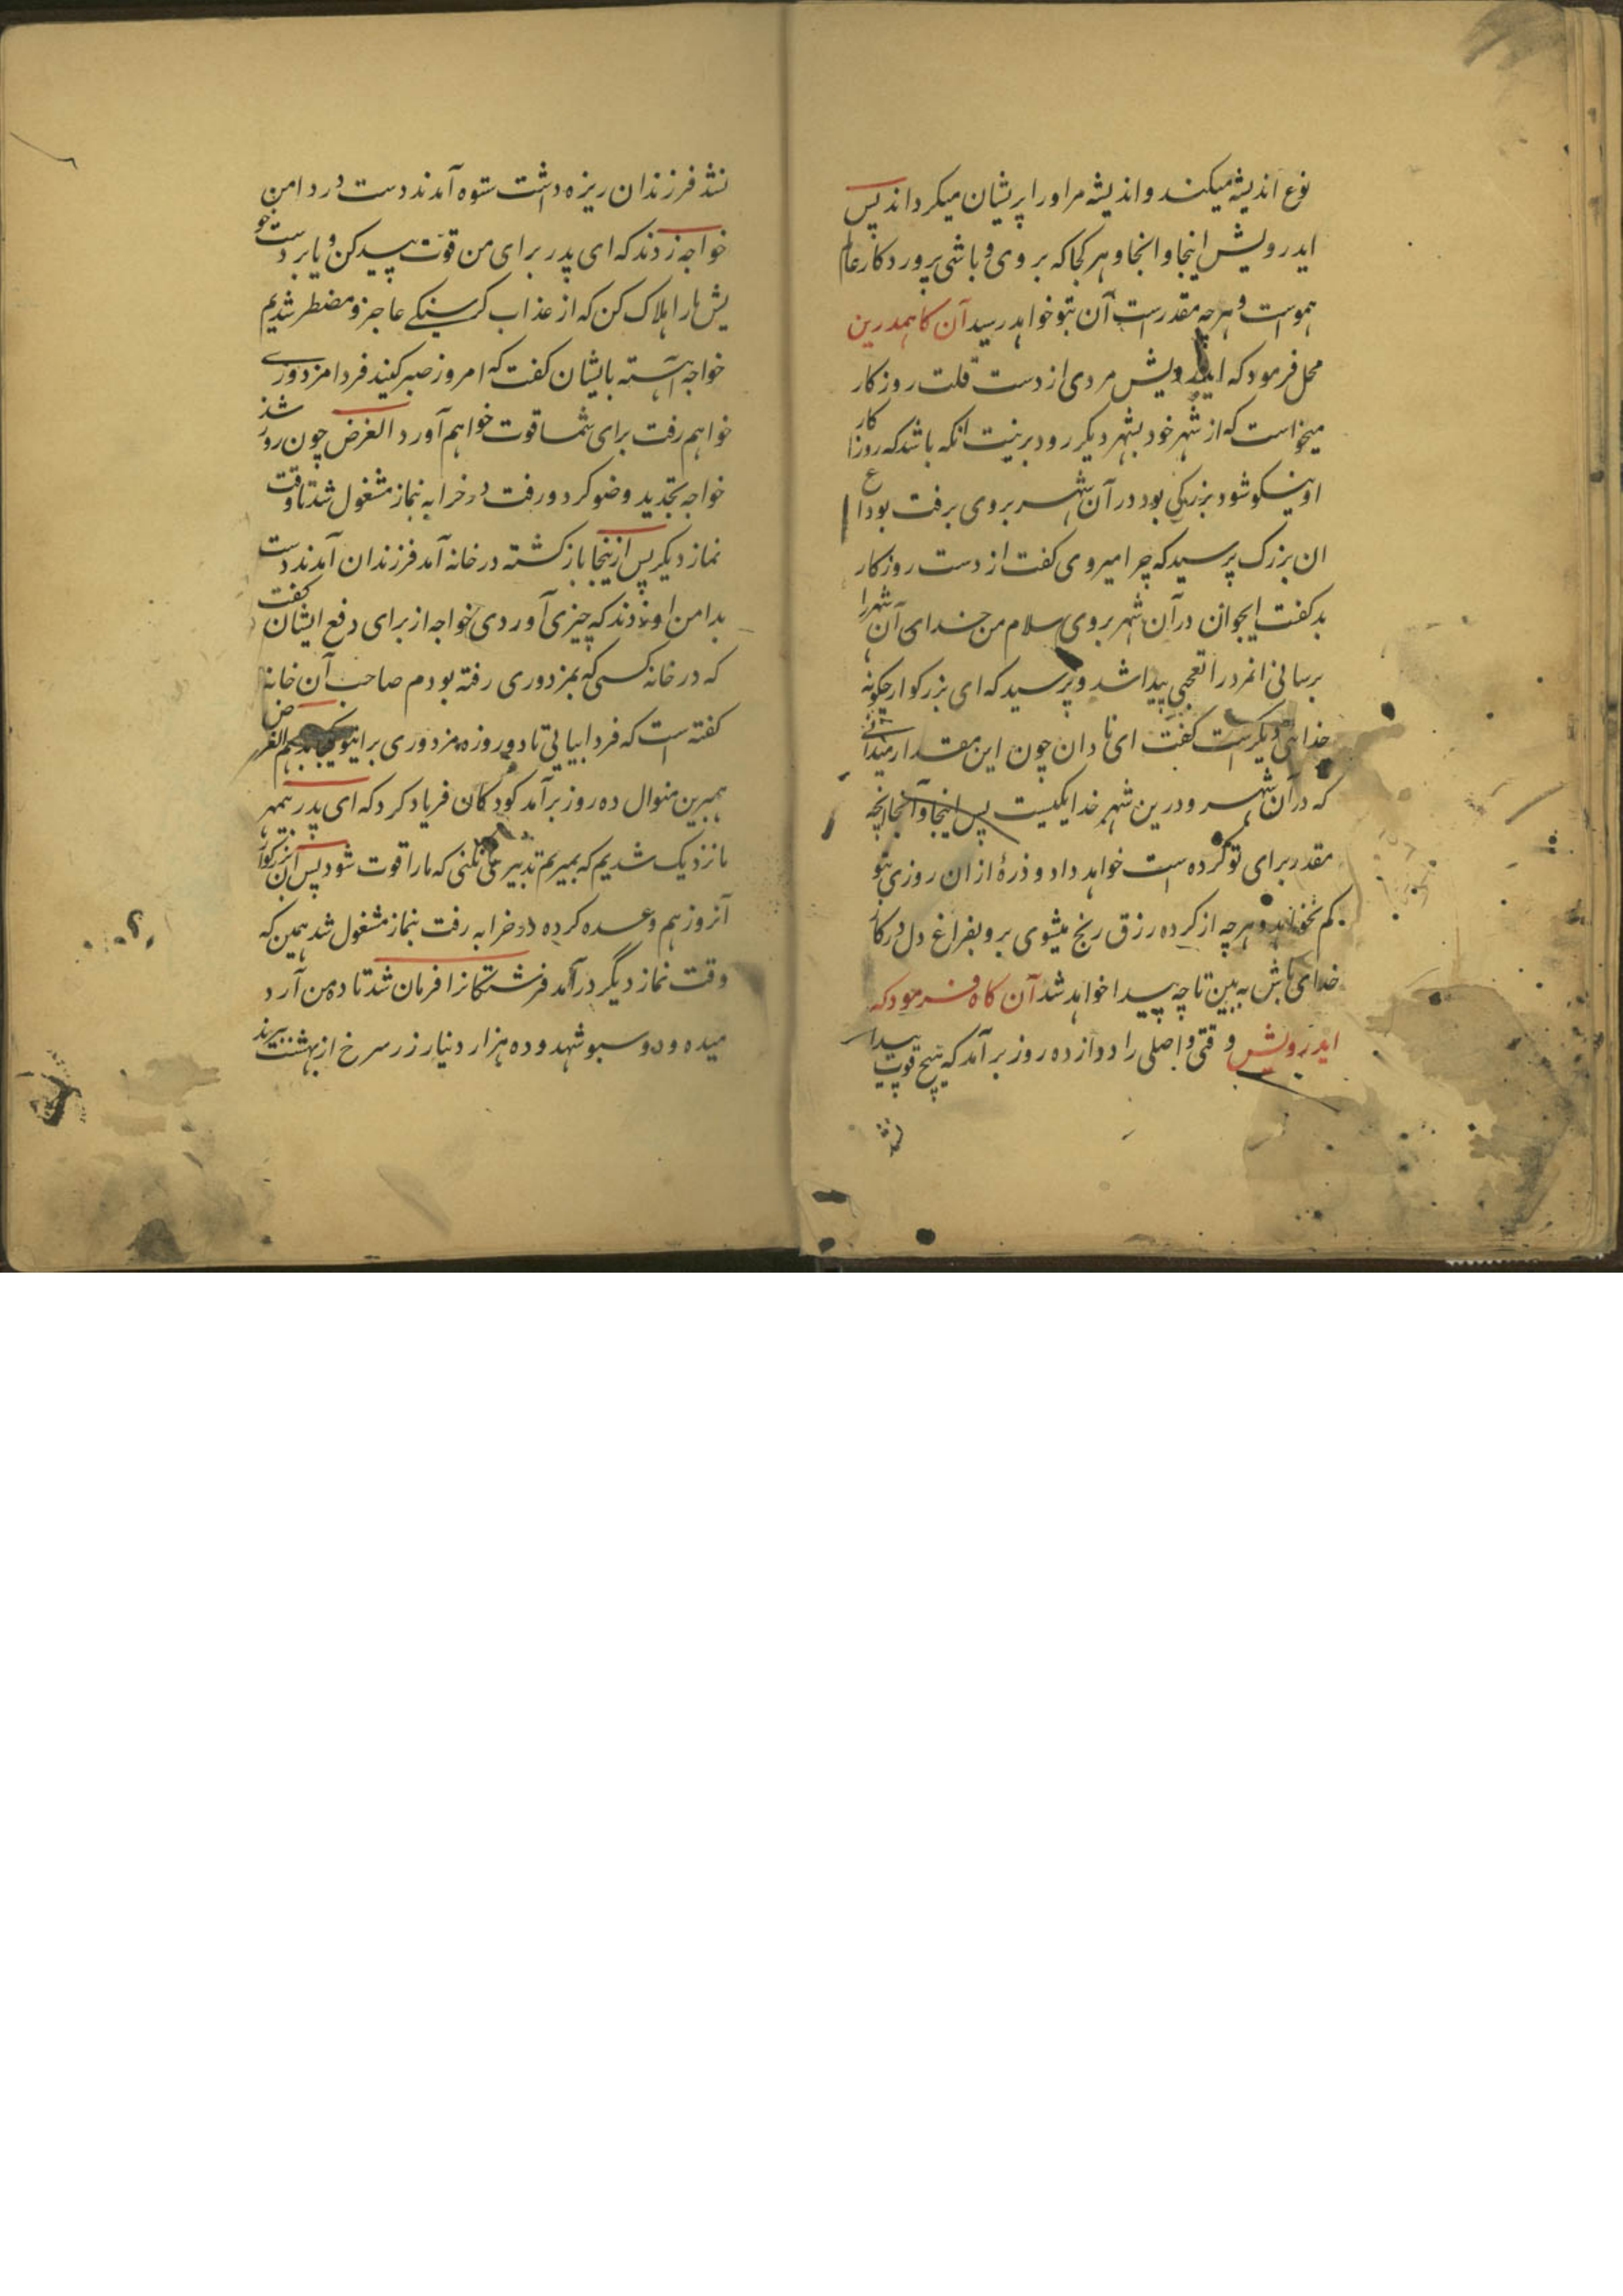 نوع اندیشه میکند و اندیشه مر اورا پریشان میکرداند پس
ایدرویش اینجا و انجا و هر کجا که بروی و باشی پروردکار عالم
هموست و هرچه مقدرست آن بتو خواهد رسید آن کاه همدرین
محل فرمود که ایدرویش مردی از دست قلت روزکار
میخواست که از شهر خود بشهر دیکر رود برنیت انکه باشد که روزکار
او نیکو شود بزرکی بود در آن شهر بروی برفت بوداع
ان بزرک پرسید که چرا میروی کفت از دست روزکار
بد کفت ایجوان در آن شهر بروی سلام من خدای آن شهر را
برسانی انمرد را تعجبی پیدا شد و پرسید که ای بزرکوار چکونه
خدای دیکرست کفت ای نادان چون این مقدار میدانی
که در آن شهر و درین شهر خدا یکیست پس اینجا و آنجا انچه
مقدر برای تو کرده است خواهد داد و ذرهٔ ازان روزی تو
کم نخواهد و هرچه از کرده رزق رنج میشوی برو بفراغ دل در کار
خدای باش به بین تا چه پیدا خواهد شد آن کاه فرمود که
ایدرویش وقتی واصلی را دوازده روز برآمد که هیچ قوت پیدا
نشد
نشد فرزندان ریزه داشت ستوه آمدند دست در دامن
خواجه زدند که ای پدر برای من قوت پیدا کن و یا بر دست خو
یش ما را هلاک کن که از عذاب کرسنکی عاجز و مضطر شدیم
خواجه آهسته بایشان کفت که امروز صبر کنید فردا مزدوری
خواهم رفت برای شما قوت خواهم آورد الغرض چون روز شد
خواجه تجدید وضو کرد و رفت در خرابه بنماز مشغول شد تا وقت
نماز دیکر پس ازینجا باز کشته در خانه آمد فرزندان آمدند دست
بدامن او زدند که چیزی آوردی خواجه از برای دفع ایشان کفت
که در خانه کسی که بمزدوری رفته بودم صاحب آن خانه
کفته است که فردا بیایی تا دو روزه مزدوری برا بتو یکجا بدهم الغرض
همبرین منوال ده روز برآمد کودکان فریاد کرد که ای پدر مهر
ما نزدیک شدیم که بمیریم تدبیر می نکنی که ما را قوت شود پس آن بزرکوار
آنروز هم وعده کرده در خرابه رفت بنماز مشغول شد همین که
وقت نماز دیگر درآمد فرشتکانرا فرمان شد تا ده من آرد
میده و دو سبو شهد و ده هزار دینار زر سرخ از بهشت ببرند